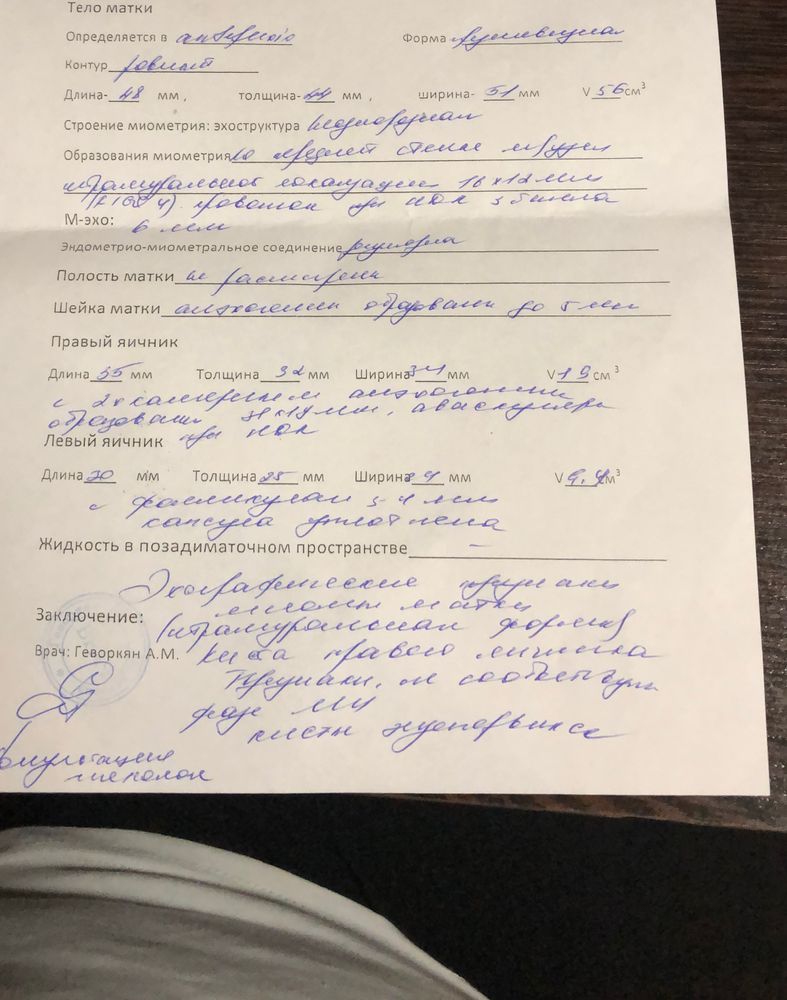 Тело матки
Определяется в anteflexio Форма грушевидная
Контур ровный
Длина- 48 мм , толщина- 44 мм , ширина- 51 мм V 56 см³
Строение миометрия: эхоструктура неоднородная
Образования миометрия по передней стенке
интрамуральной локализации 16х12мм
кровоток при ЦДК
М-эхо: 6 мм
Эндометрио-миометральное соединение
Полость матки не расширена
Шейка матки анэхогенные образования до 5 мм
Правый яичник
Длина 55 мм Толщина 32 мм Ширина мм V 19 см³
с 2х камерным анэхогенным
образованием мм, аваскулярн
при ЦДК
Левый яичник
Длина мм Толщина 25 мм Ширина мм V см³
с фолликулами 3-4 мм
капсула уплотнена
Жидкость в позадиматочном пространстве –
Эхографические признаки
миомы матки
Заключение: (интрамуральная форма)
Врач: Геворкян А.М. Киста правого яичника
Признаки, не соответствующ
фазе МЦ
кисты эндоцервикса
гинеколог